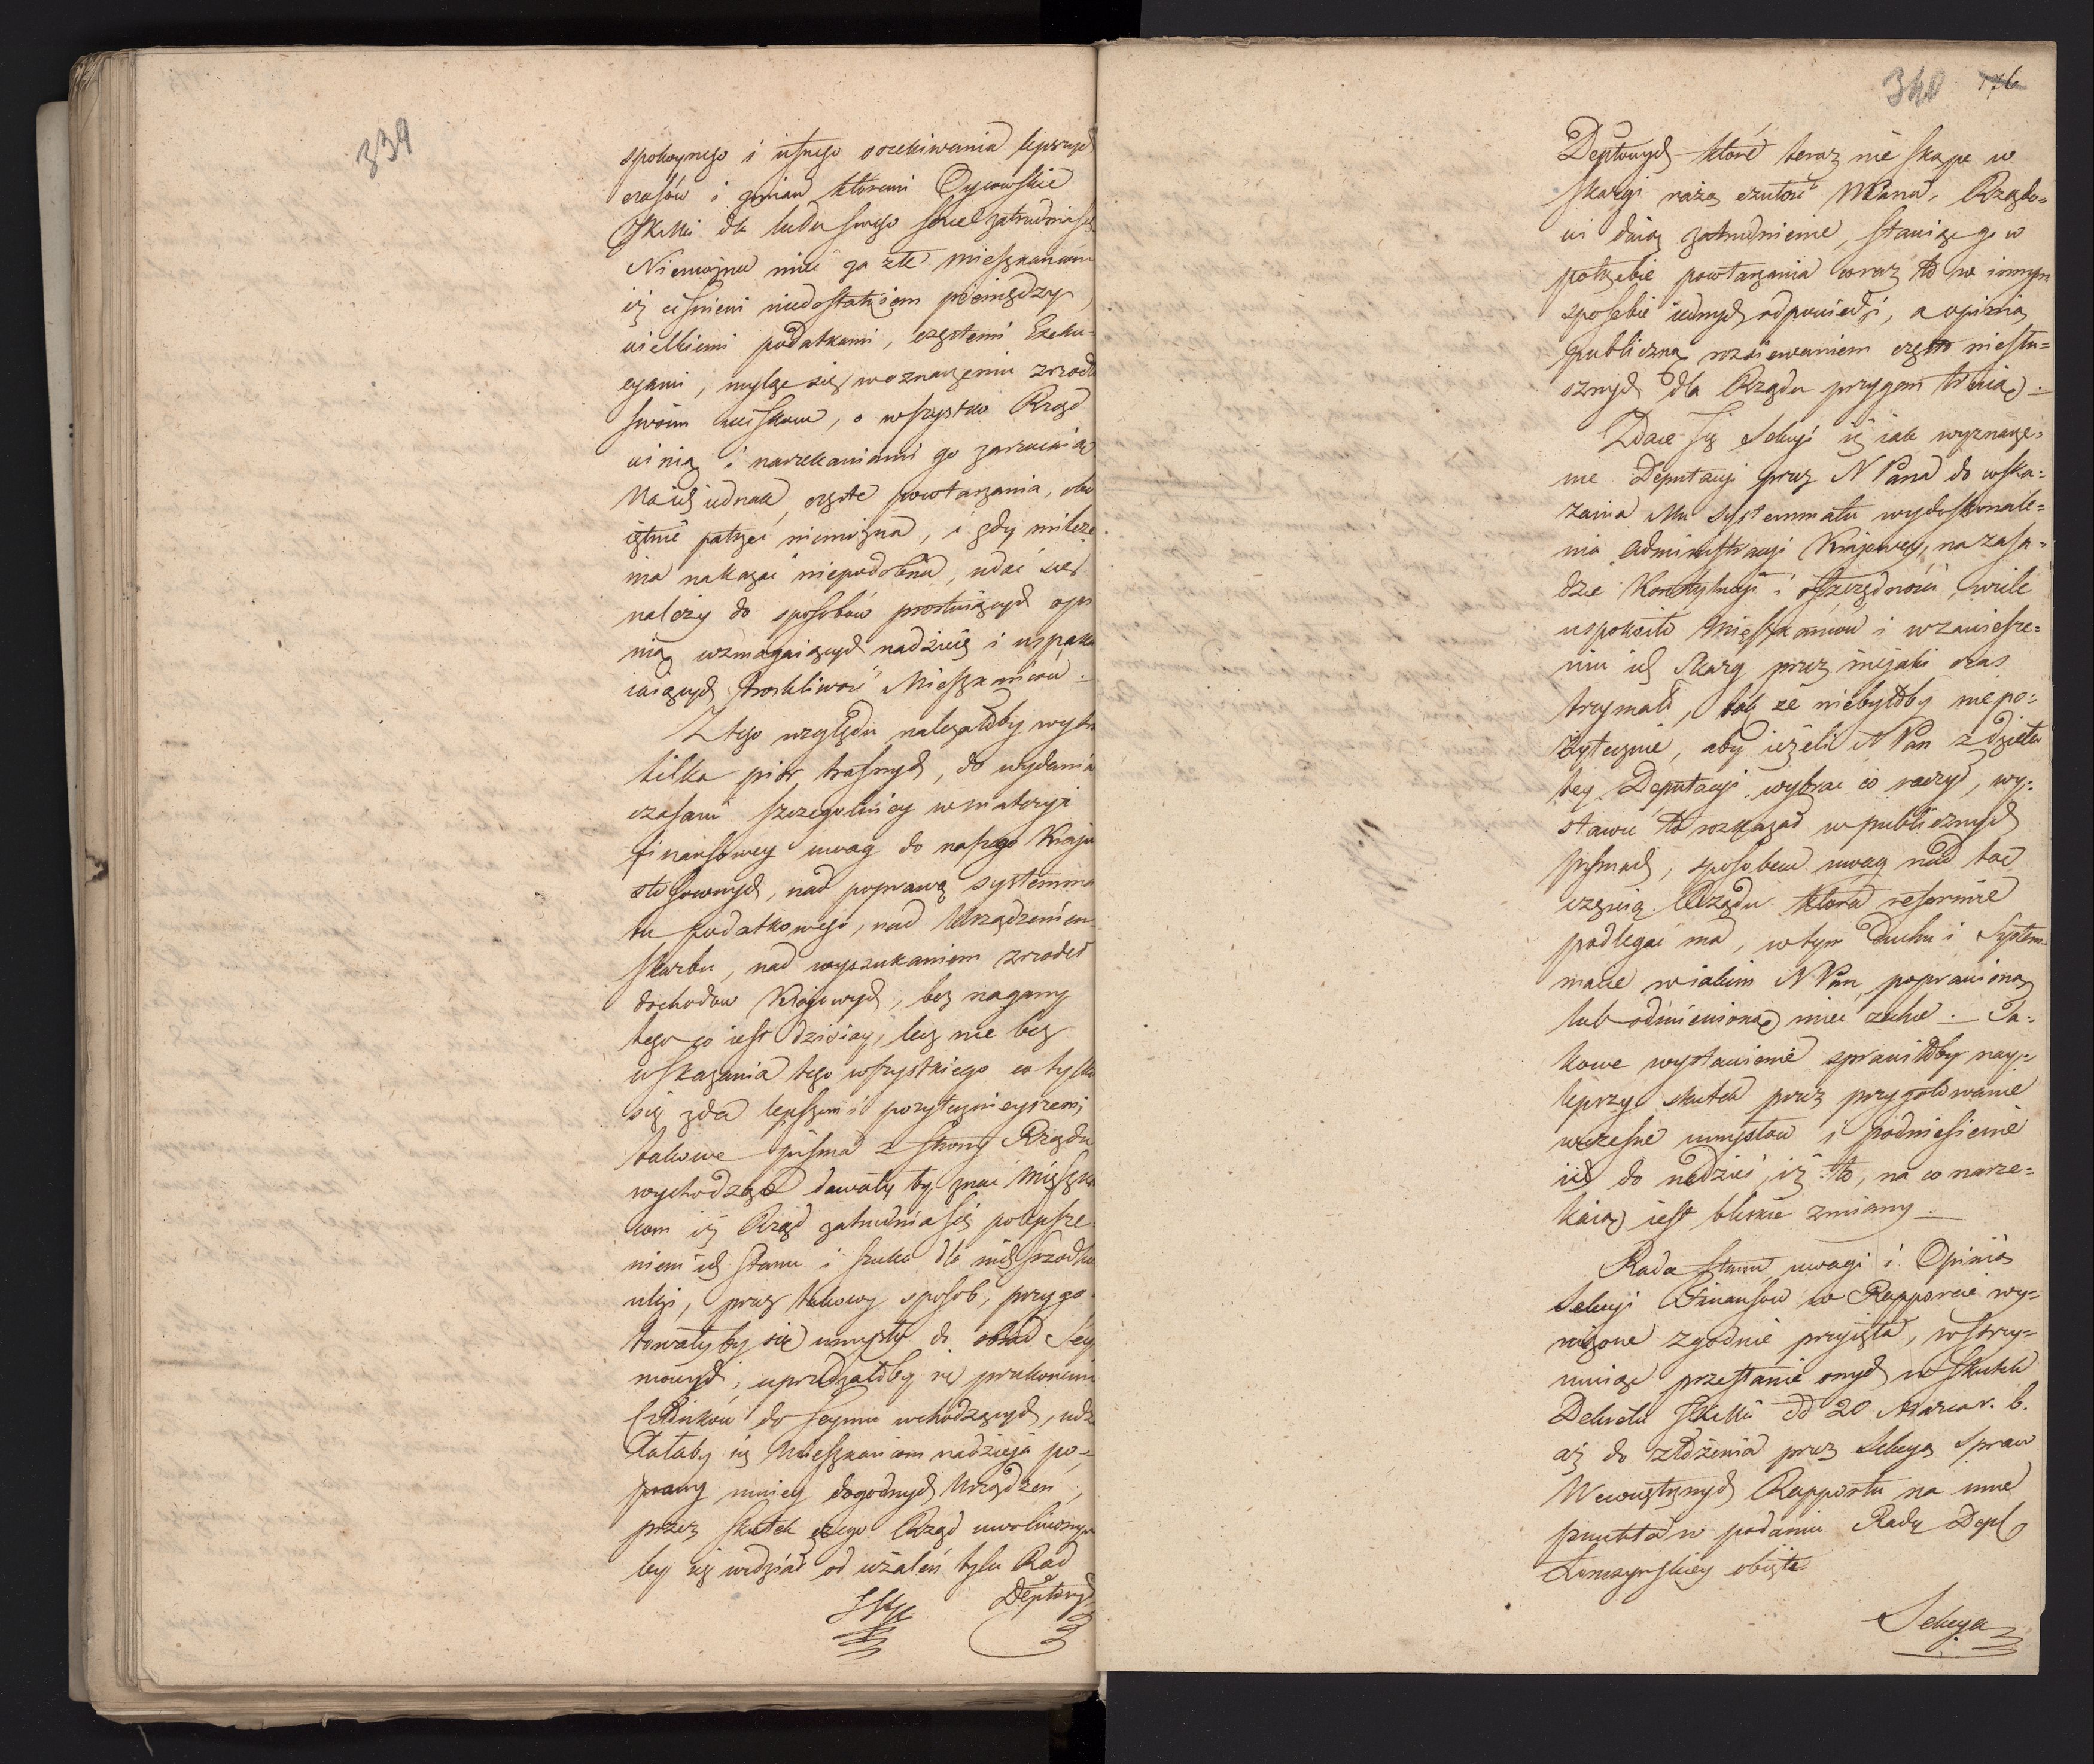 339
spokoynego i ufnego oczekiwania lepszych
czasów i zmian któremi Oycowskie
JKMci dla ludu swego serce zatrudnia się
Niemożna mieć za złe mieszkańcom
iż cisnieni niedostatkiem pieniędzy,
wielkiemi podatkami, częstemi Exeku-
cyami, myląc się w oznaczeniu zrzodła
swoim uciskom, o wszystko Rząd
winią i narzekaniami go zarzucaią
Na ich iednak częste powtarzania, obo
iętnie patrzeć niemożna, i gdy milcze
nia nakazać niepodobna, udać się
należy do sposobów prostuiących opi
nią wzmagaiących nadzieię i uspaka
iaiących troskliwość Mieszkańców.
Z tego względu należałoby wybr
kilka piór trafnych, do wydania
czasami szczegolniey w materyi
finansowey uwag do naszego Kraju
stosownych, nad poprawą systemma
tu podatkowego, nad Urządzeniem
skarbu, nad wyszukaniem zrzodeł
dochodow Kraiowych, bez nagany
tego co iest dzisiay, lecz nie bez
wskazania tego wszystkiego co tylko
się zda lepszem i pożytecznieyszem;
takowe pisma z strony Rządu
wychodzące dawały by znać Mieszkań
com iż Rząd zatrudnia się polepsze
niem ich stanu i szuka dla nich srzodków
ulgi, przez takowy sposób, przygo
towałyby się umysły do obrad Sey
mowych, uprzedzałoby się przekonanie
Członków do Seymu wchodzących, udzi
elałaby się Mieszkańcom nadzieja po-
prawy mniey dogodnych Urządzeń,
przez skutek czego Rząd uwolnionym
by się widział od użaleń tylu Rad
Deptowych
340 176
Deptowych które teraz nie skąpe w
skargi rażą czułość NPana, Rządo=
wi daią zatrudnienie, stawiąc go w
potrzebie powtarzania coraz to w innym
sposobie iednych odpowiedzi, a opinią
publiczną rozsiewaniem często niesłu=
sznych dla Rządu przygan trwią.
Zdaie się Sekcyi iż iak wyznacze=
nie Deputacyi przez N Pana do wska=
zania Mu systemmatu wydoskonale=
nia Administracyi Krajowey, na zasa=
dzie Konstytucyi i oszczędności, wiele
uspokoiło Mieszkańców i w zawiesze=
niu ich skarg przez niejaki czas
trzymało, tak że niebyłoby niepo=
żytecznie, aby ieżeli N Pan z dzieła
tey Deputacyi wybrać co raczył, wy=
stawić to rozkazał w publicznych
pismach, sposobem uwag nad tąż
częścią Rządu która reformie
podlegać ma, w tym duchu i System=
macie w iakim N Pan poprawioną
lub odmienioną mieć zechce. — Ta=
kowe wystawienie sprawiłoby nay=
lepszy skutek przez przygotowanie
wczesne umysłów i podniesienie
ich do nadziei iż to, na co narze=
kaią iest bliskie zmiany. —
Rada Stanu uwagi i Opinią
Sekcyi Finansow w Rapporcie wy=
rażone zgodnie przyięła, wstrzy=
muiąc przesłanie onych w skutek
Dekretu JKMci dd 20 Marca r. b.
aż do złożenia przez Sekcyą Spraw
Wewnętrznych Rapportu na inne
punkta w podaniu Rady Depl
Łomżyńskiey obięte
Sekcya